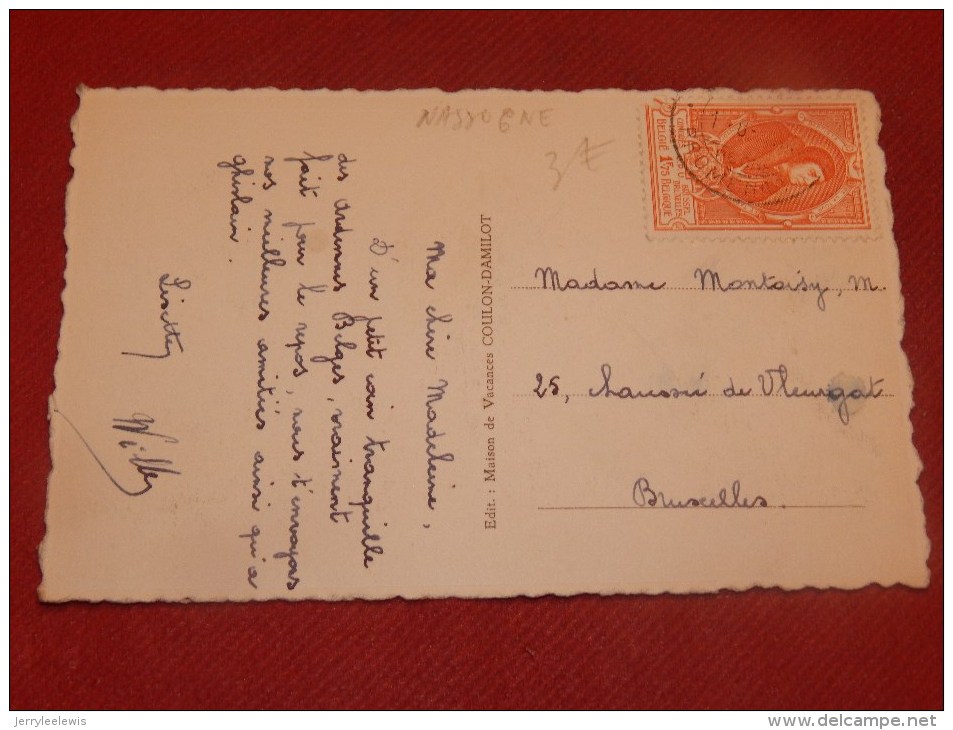 NASSOGNE
3€
Ma chère Madeleine,
D'un petit coin tranquille
des Ardennes Belges, vraiment
fait pour le repos, nous t'envoyons
nos meilleures amitiés ainsi qu'a
ghislain.
Lisette
Willy
Edit.: Maison de Vacances COULON-DAMILOT
BELGIE 1F75 BELGIQUE
Madame Montoisy, M.
25, chaussée de Vleurgat
Bruxelles.
jerryleelewis
www.delcampe.net